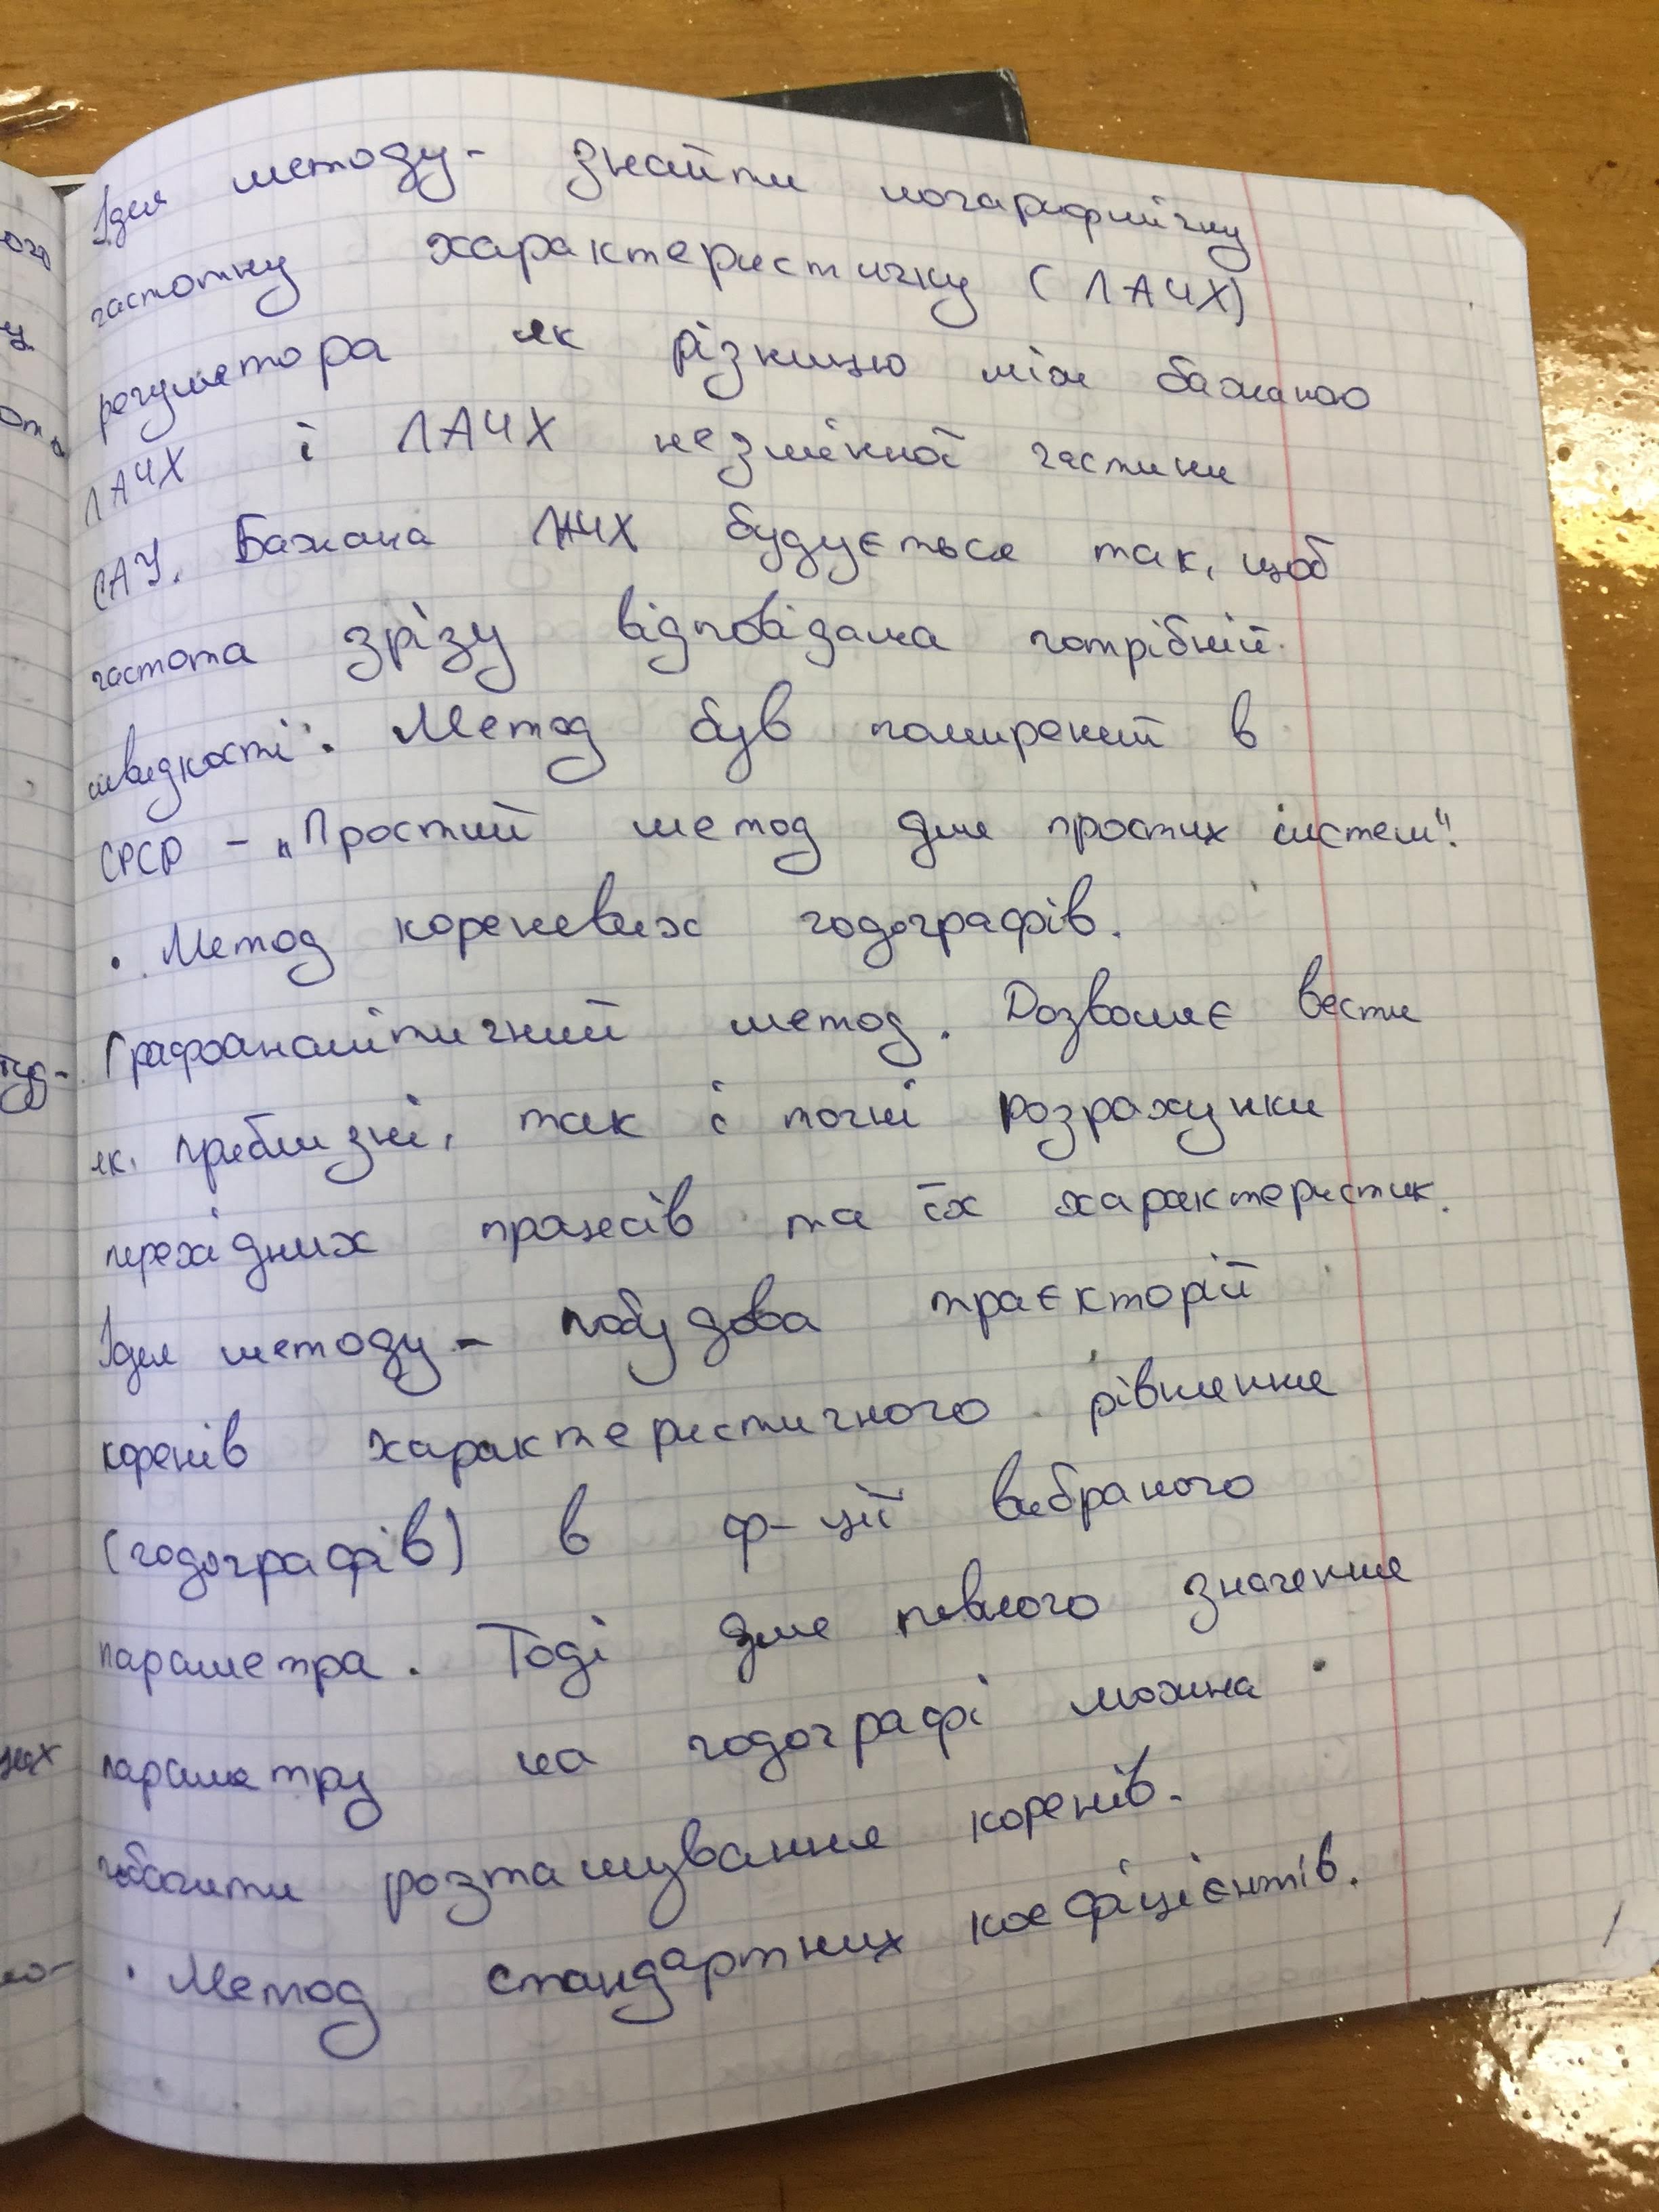 Ідея методу - знайти логарифмічну
частотну характеристичку (ЛАЧХ)
регулятора як різницю між бажаною
ЛАЧХ і ЛАЧХ незмінної частини
САУ. Бажана ЛАЧХ будується так, щоб
частота зрізу відповідала потрібній
швидкості. Метод був поширений в
СРСР - "Простий метод для простих систем".
• Метод кореневих годографів.
Графоаналітичний метод. Дозволяє вести
як приблизні, так і точні розрахунки
перехідних процесів та їх характеристик.
Ідея методу - побудова траєкторій
коренів характеристичного рівняння
(годографів) в ф-ції вибраного
параметра. Тоді для певного значення
параметру на годографі можна
побачити розташування коренів.
• Метод стандартних коефіцієнтів.